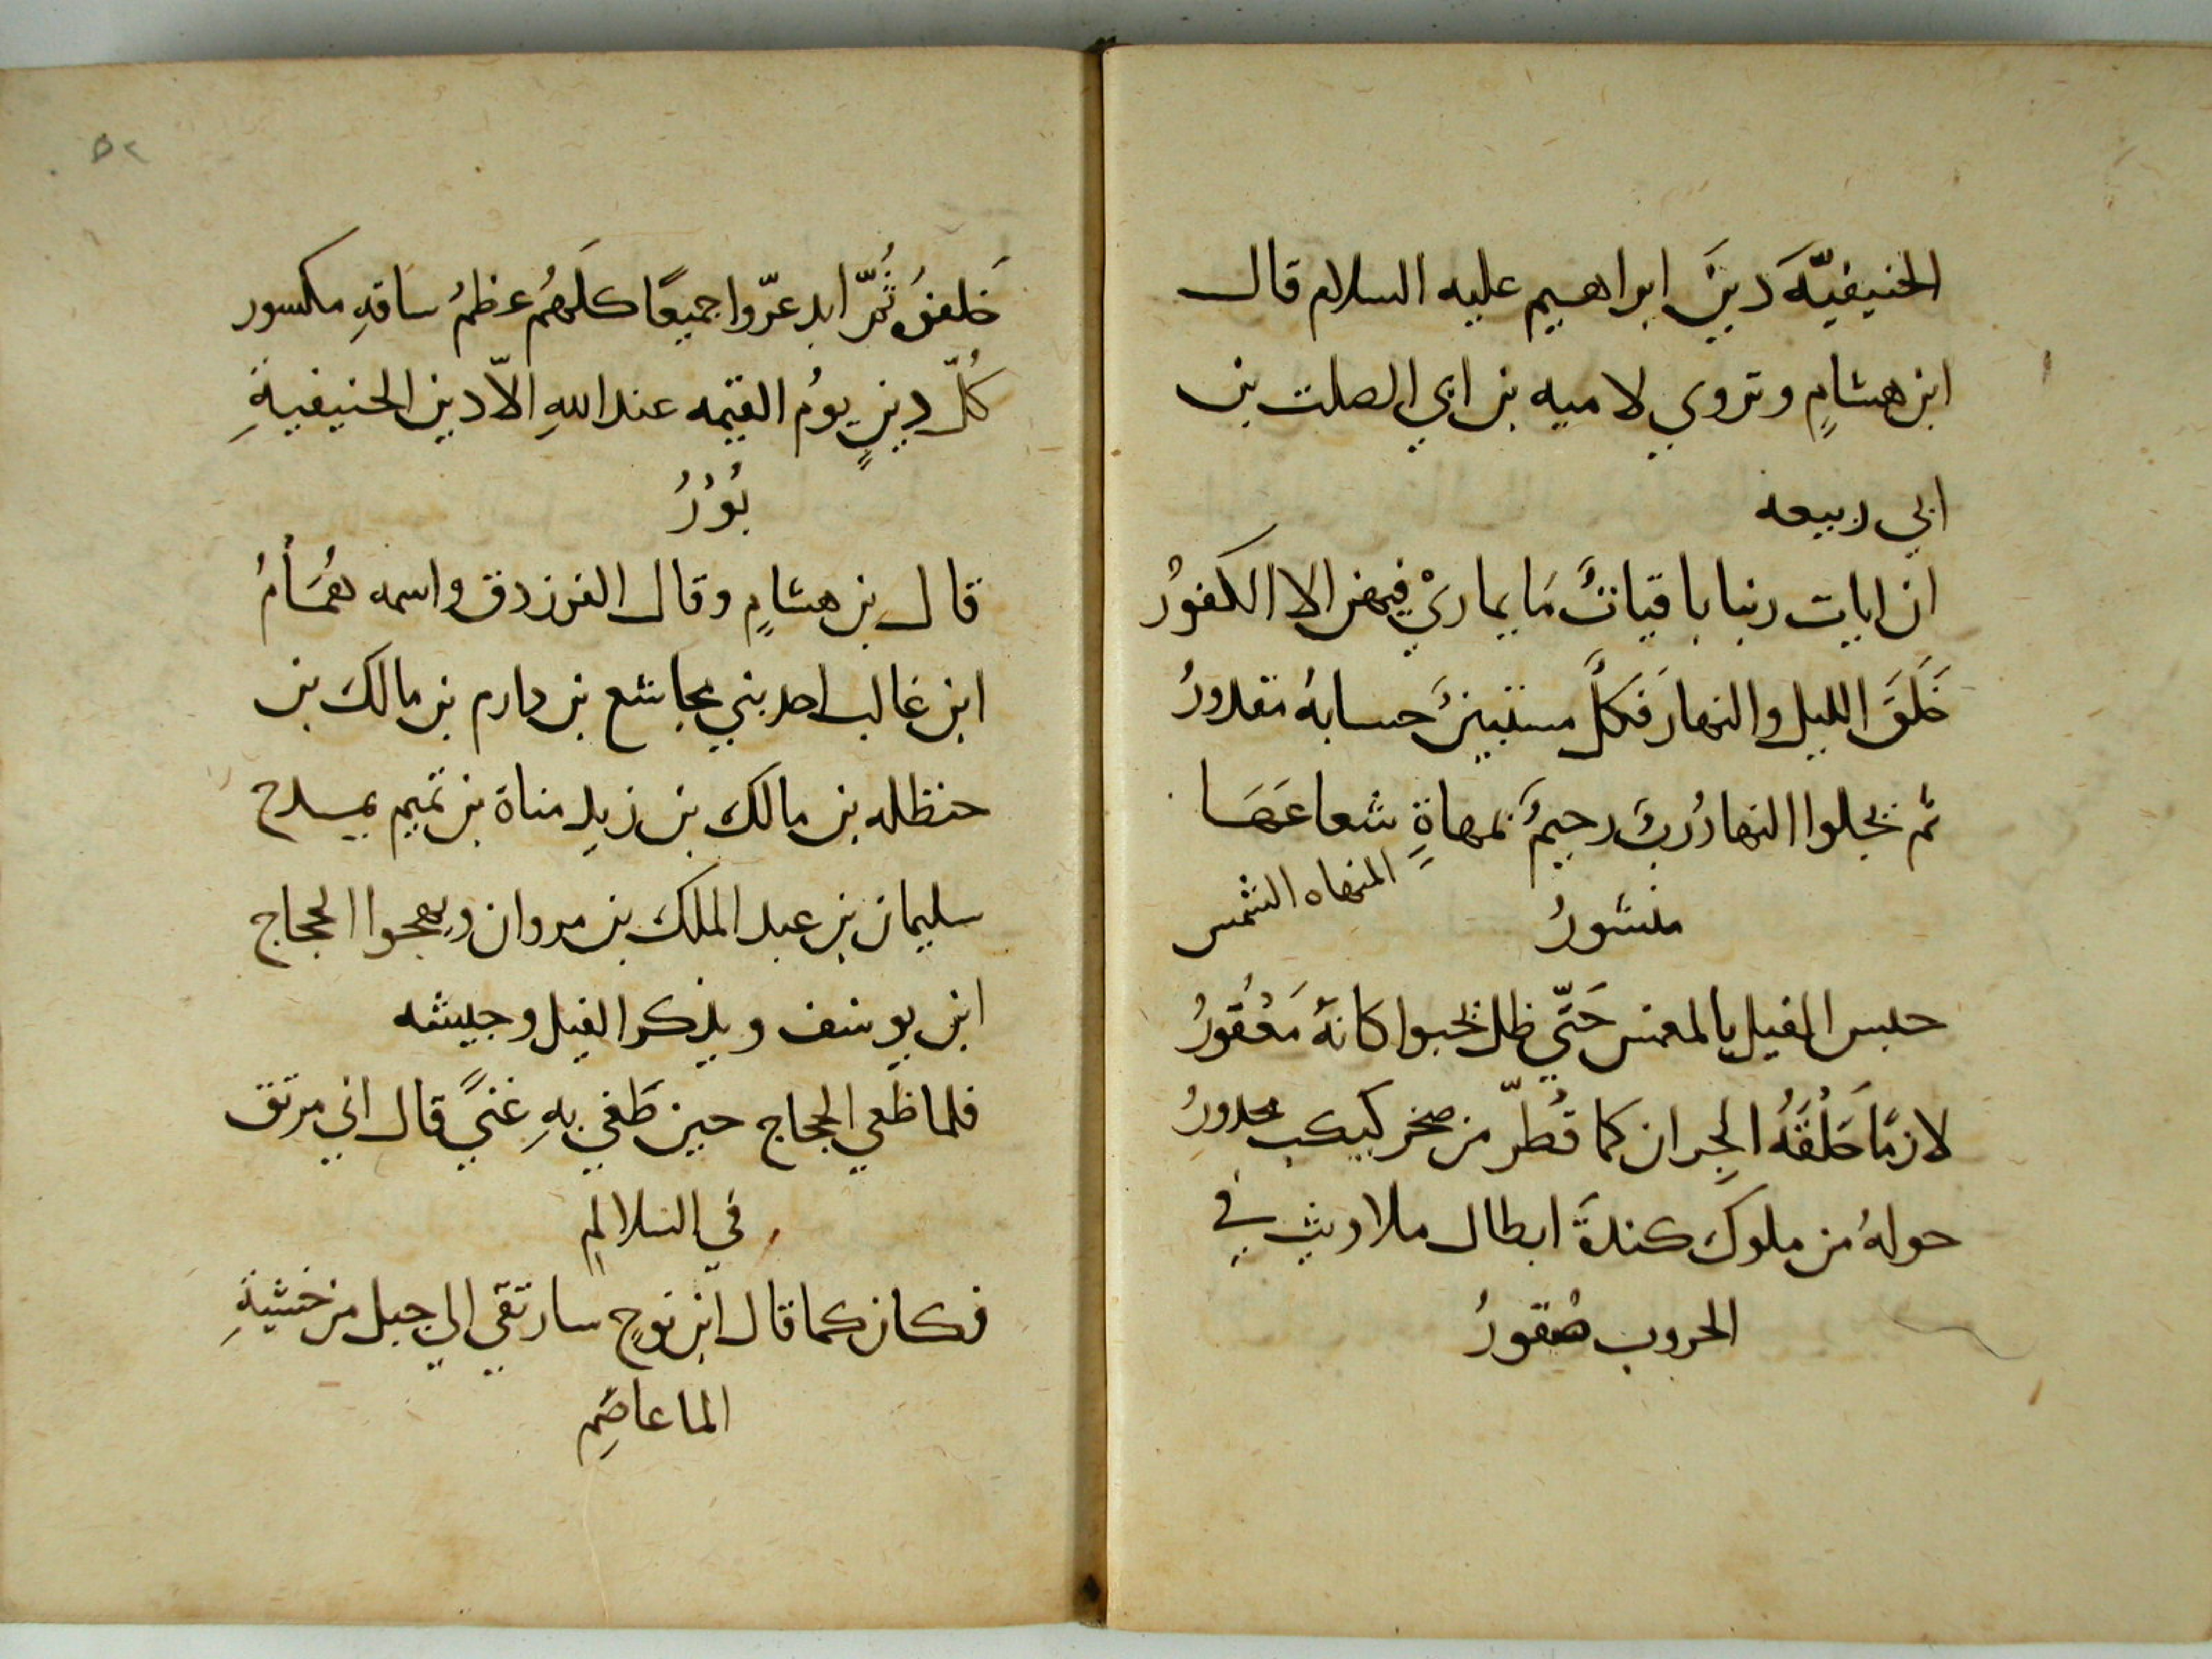 الحنيفيّةَ دينَ ابراهيم عليه السلام قال
ابن هشامٍ وتروي لاميه بن ابي الصلت بن
ابي ربيعه
ان ايات ربنا باقياتٌ مَا يماريْ فيهن الا الكفورُ
خَلَقَ الليل والنهارَ فكلٌّ مستبينٌ حسابهُ مقدورُ
ثم يجلوا النهارُ ربٌ رحيمٌ بمهاةٍ شعاعَهَا
منشورُ
المنهاه الشمس
حبس الفيل بالمغمس حَتّي ظل يحبوا كانهُ مَعْقُورُ
لازمًا حَلْقَهُ الجِران كما قُطّر من صخر كبكب محدورُ
حولهُ من ملوك كندةَ ابطال ملاويث في
الحروب صُقورُ
٥٢
خَلفوُ ثُمّ ابدعرّوا جميعًا كلَهُم عظمُ ساقهِ مكسور
كُلّ دينٍ يومُ القيمه عند اللهِ الّا دين الحنيفيةِ
بُوْرُ
قال بن هشامٍ وقال الفرزدق واسمه هُمَّامُ
ابن غالب احد بني مجاشع بن دارم بن مالك بن
حنظله بن مالك بن زيدِ مناة بن تميم يمدح
سليمان بن عبد الملك بن مروان ويهجوا الحجاج
ابن يوسف ويذكر الفيل وجيشه
فلما طغي الحجاج حين طَغي بهِ غنيً قال اني مرتق
في السلالمِ
فكان كما قال ابن نوحٍ سارتقي الي جبل من خشيةِ
الما عاصِمِ